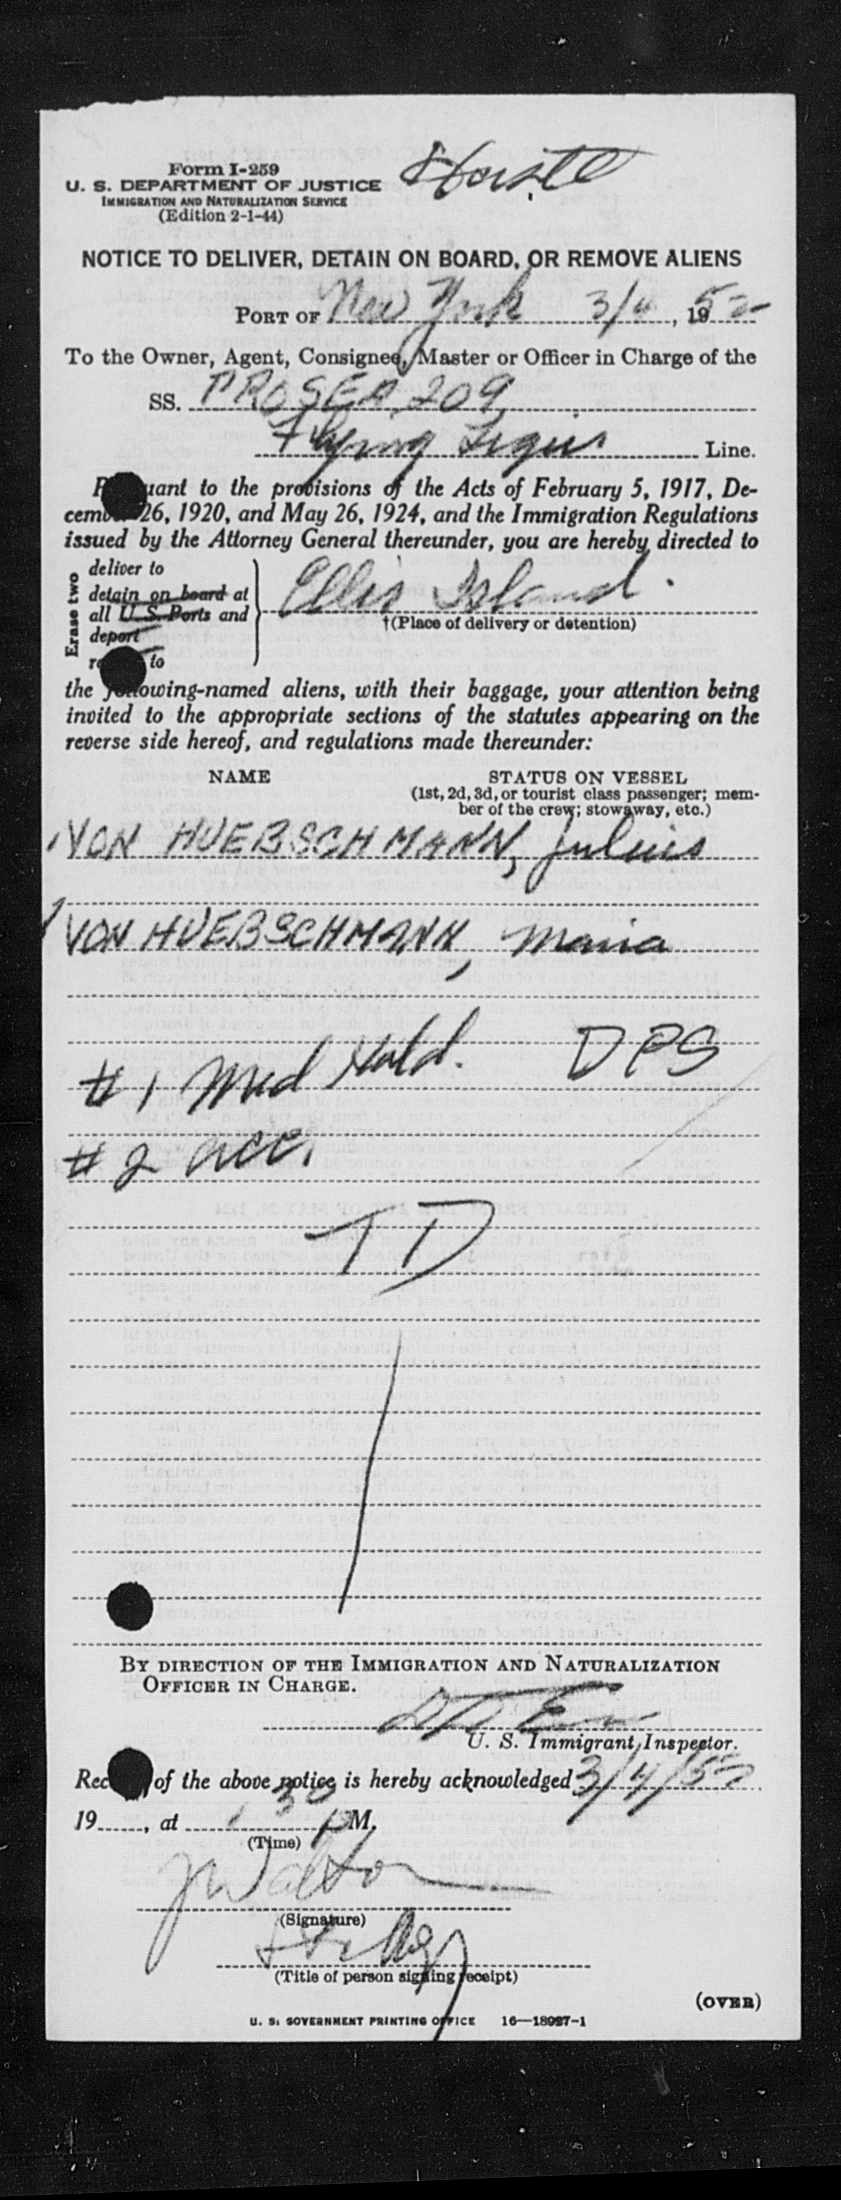 Form I-259
U. S. DEPARTMENT OF JUSTICE
IMMIGRATION AND NATURALIZATION SERVICE
(Edition 2-1-44)
NOTICE TO DELIVER, DETAIN ON BOARD, OR REMOVE ALIENS
PORT OF New York 3/4, 1952
To the Owner, Agent, Consignee, Master or Officer in Charge of the
SS. 209
Flying Line.
uant to the provisions of the Acts of February 5, 1917, De-
cem 26, 1920, and May 26, 1924, and the Immigration Regulations
issued by the Attorney General thereunder, you are hereby directed to
Erase two
deliver to
detain on board at
all U. S. Ports and
deport
to
Ellis Island.
†(Place of delivery or detention)
the following-named aliens, with their baggage, your attention being
invited to the appropriate sections of the statutes appearing on the
reverse side hereof, and regulations made thereunder:
NAME STATUS ON VESSEL
(1st, 2d, 3d, or tourist class passenger; mem-
ber of the crew; stowaway, etc.)
VON HUEBSCHMANN, Julius
VON HUEBSCHMANN, Maria
#1 Med Hold. DPS
#2 acc.
TD
BY DIRECTION OF THE IMMIGRATION AND NATURALIZATION
OFFICER IN CHARGE.
U. S. Immigrant Inspector.
Rec of the above notice is hereby acknowledged 3/4/52
19......, at 1 30 PM.
(Time)
J Walton
(Signature)
(Title of person signing receipt)
(OVER)
U. S. GOVERNMENT PRINTING OFFICE 16—18927-1